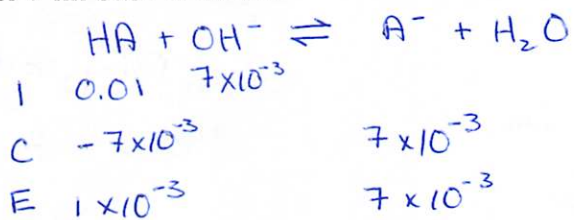 HA + OH⁻ ⇌ A⁻ + H₂O
I 0.01 7×10⁻³
C -7×10⁻³ 7×10⁻³
E 1×10⁻³ 7×10⁻³